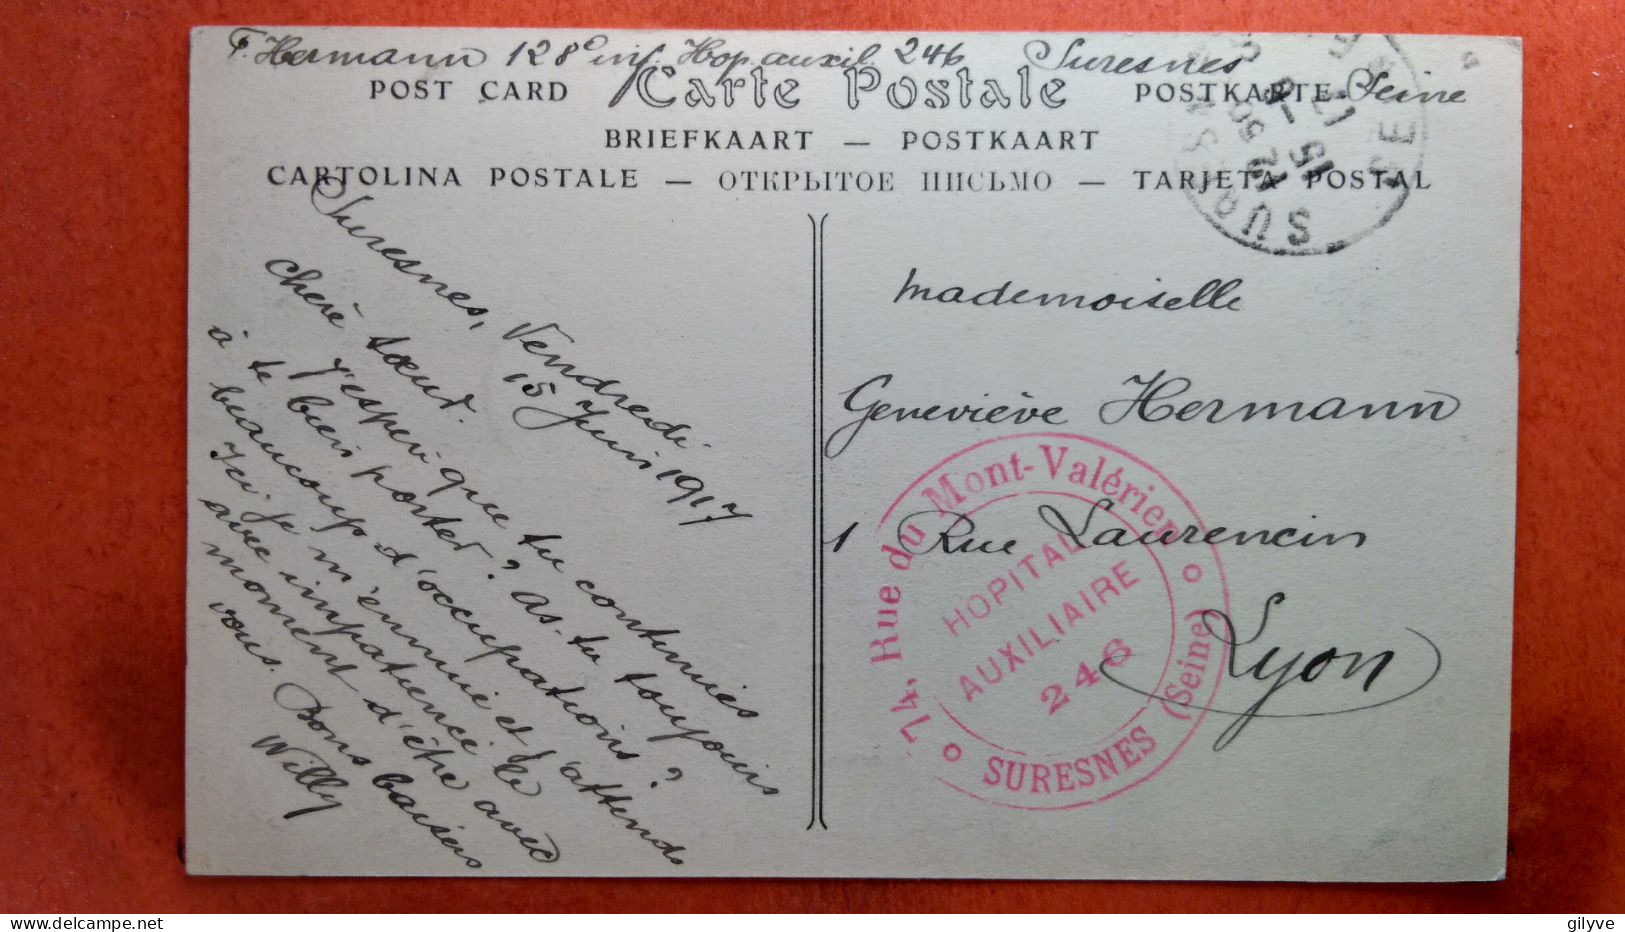 F. Hermann 128e inf. Hop. auxil. 246 Suresnes
Seine
POST CARD Carte Postale POSTKARTE
BRIEFKAART — POSTKAART
CARTOLINA POSTALE — ОТКРЫТОЕ ПИСЬМО — TARJETA POSTAL
Suresnes, Vendredi
15 Juin 1917
Cherè sœur.
J'esperè que tu continues
à te bien porter? as-tu toujours
beaucoup d'occupations?
Ici je m'ennuie et j'attends
avec impatience le
moment d'être avec
vous. Bons baisers
Willy
Mademoiselle
Geneviève Hermann
1 Rue Laurencin
Lyon
74, Rue du Mont-Valérien
HOPITAL
AUXILIAIRE
246
SURESNES (Seine)
SURESNES
SEINE
gilyve